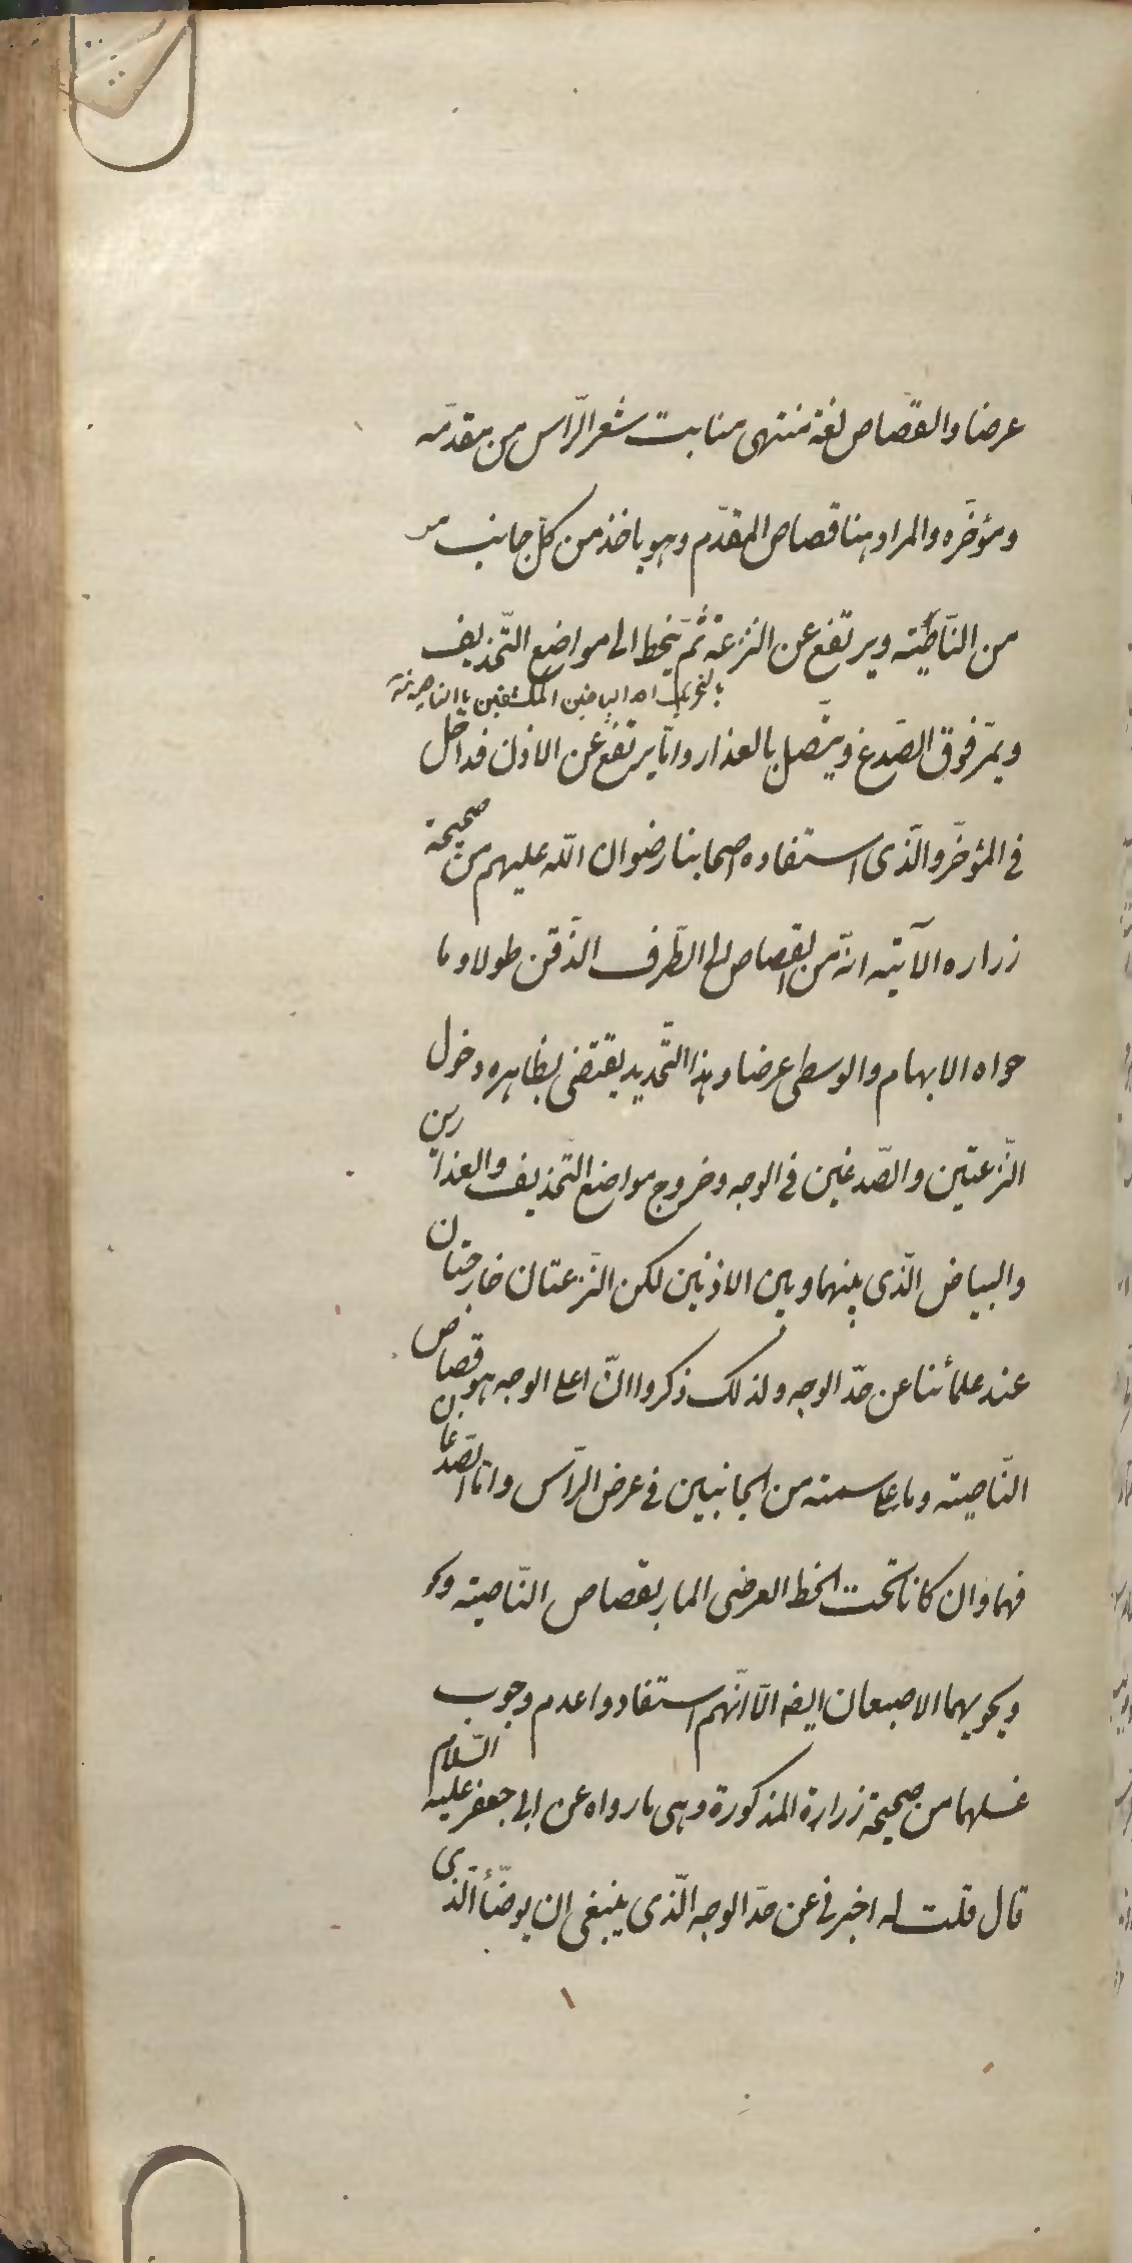 عرضا والقصاص لغة منتهى منابت شعر الرّأس من مقدّمه
ومؤخّره والمراد هنا قصاص المقدّم وهو ياخذ من كلّ جانب
من النّاصية ويرتفع عن النّزعة ثمّ ينحط الى مواضع التّحذيف
بالتحريك احد البياضين المكتنفين بالناصية منه
ويمرّ فوق الصّدغ ويتّصل بالعذار وامّا يرتفع عن الاذن فداخل
في المؤخّر والّذى استفاده اصحابنا رضوان اللّه عليهم من صحيحة
زراره الآتيه انّه من القصاص الى الطّرف الذّقن طولا وما
حواه الابهام والوسطى عرضا وهذا التّحديد يقتضى بظاهره دخول
النّزعتين والصّدغين في الوجه وخروج مواضع التّحذيف والعذارين
والبياض الّذى بينهما وبين الاذنين لكن النّزعتان خارجتان
عند علمائنا عن حدّ الوجه ولذلك ذكروا انّ اعلى الوجه هو قصاص
النّاصيته وما على سمته من الجانبين في عرض الرّأس وامّا الصّدغان
فهما وان كانا تحت الخط العرضى المار بقصاص النّاصيته
ويحويهما الاصبعان ايضا الّا انّهم استفادوا عدم وجوب
غسلهما من صحيحة زرارة المذكورة وهى ما رواه عن ابى جعفر عليه السّلام
قال قلت له اخبرنى عن حدّ الوجه الّذى ينبغى ان يوضّأ الّذى